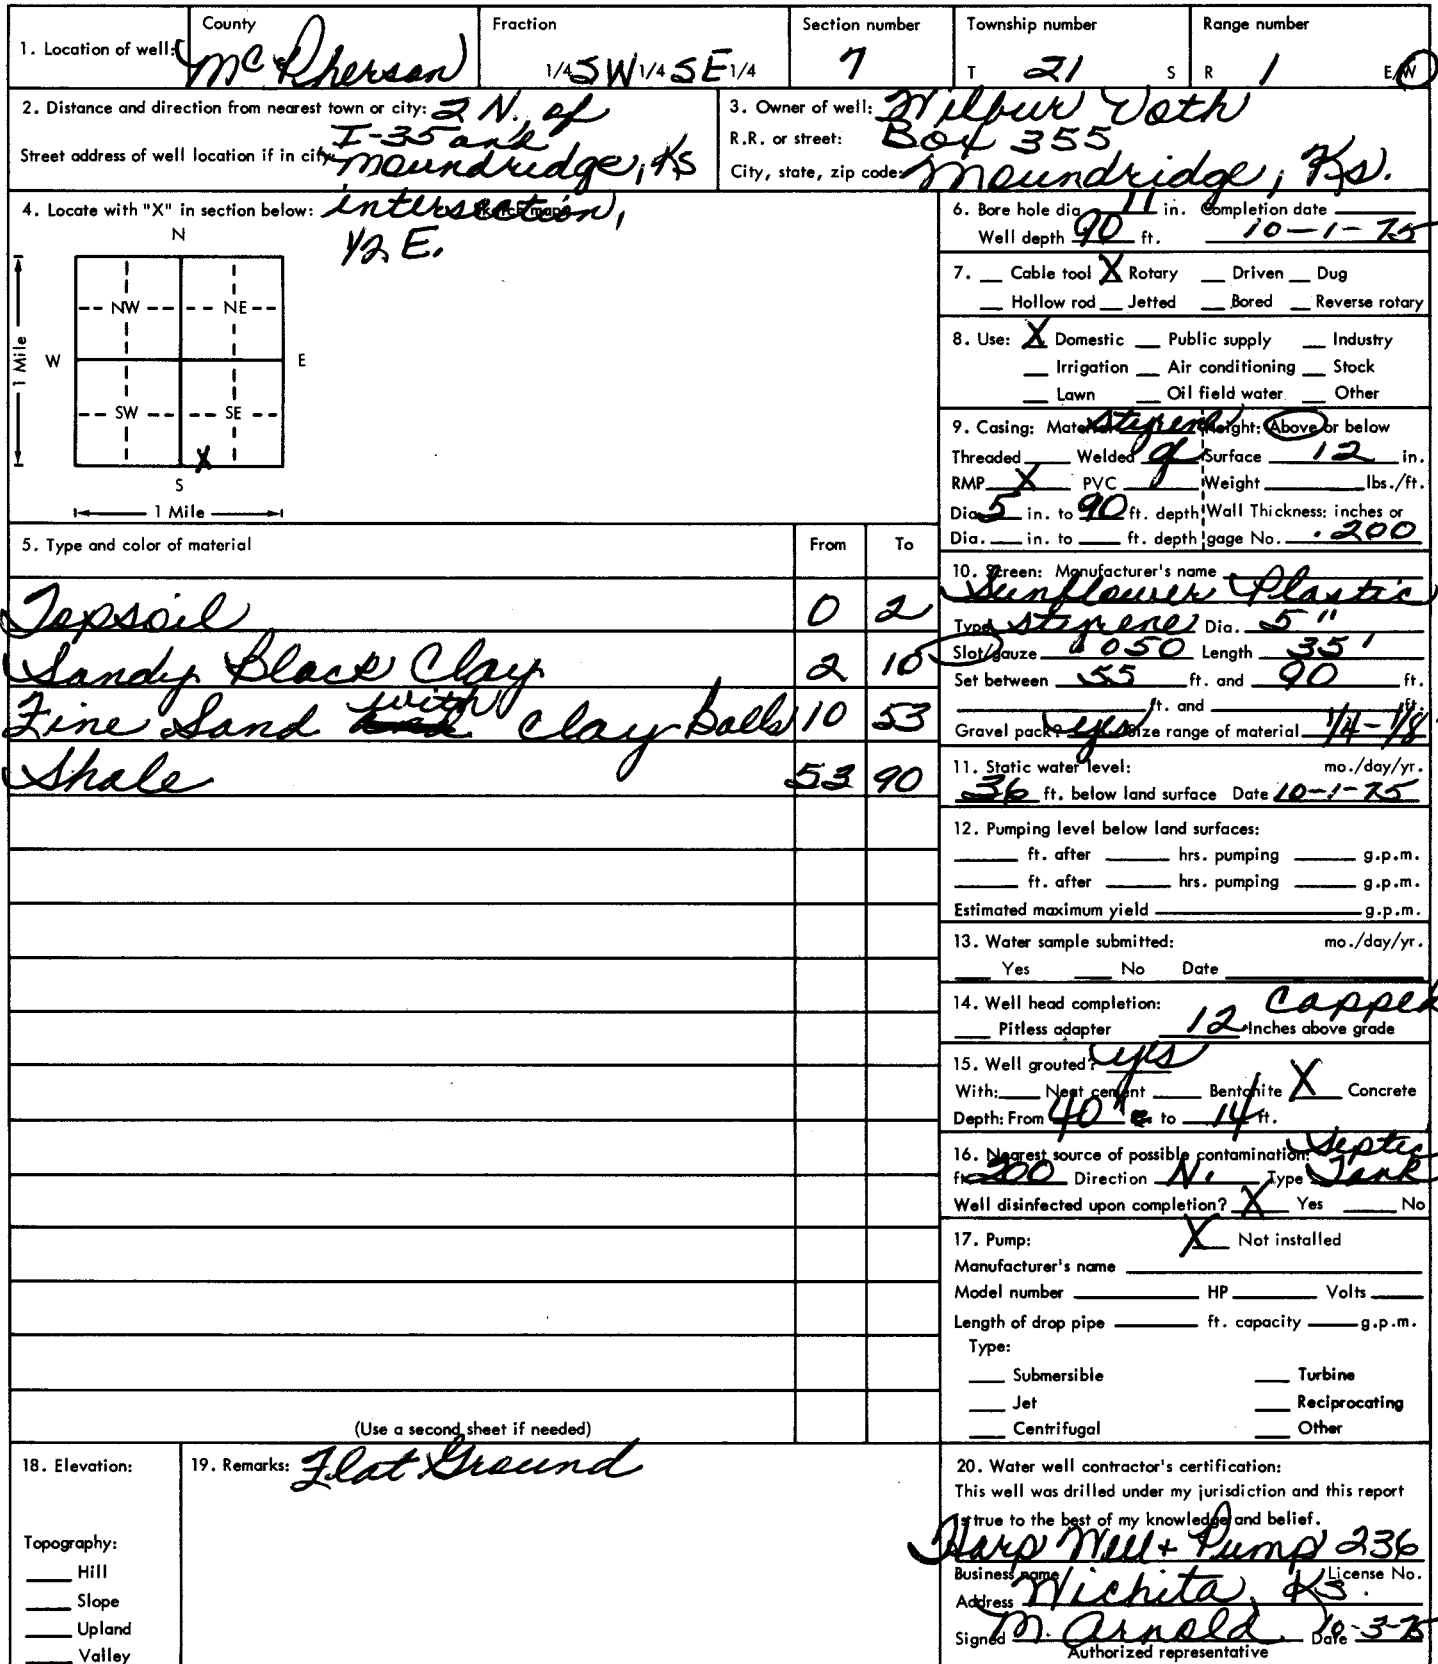 1. Location of well: County McPherson Fraction 1/4 SW 1/4 SE 1/4 Section number 7 Township number T 21 S Range number R 1 E/W
2. Distance and direction from nearest town or city: 2 N. of
I-35 and
Street address of well location if in city: Moundridge, Ks
3. Owner of well: Wilbur Voth
R.R. or street: Box 355
City, state, zip code: Moundridge, Ks.
4. Locate with "X" in section below: intersection,
1/2 E.
N
NW NE
W E
1 Mile
SW SE
X
S
1 Mile
5. Type and color of material From To
Topsoil 0 2
Sandy Black Clay 2 10
Fine Sand with Clay Balls 10 53
Shale 53 90
(Use a second sheet if needed)
6. Bore hole dia. 11 in. Completion date
Well depth 90 ft. 10-1-75
7. Cable tool X Rotary Driven Dug
Hollow rod Jetted Bored Reverse rotary
8. Use: X Domestic Public supply Industry
Irrigation Air conditioning Stock
Lawn Oil field water Other
9. Casing: Material styrene Height: Above or below
Threaded Welded Surface 12 in.
RMP X PVC Weight lbs./ft.
Dia. 5 in. to 90 ft. depth Wall Thickness: inches or
Dia. in. to ft. depth gage No. .200
10. Screen: Manufacturer's name
Sunflower Plastic
Type styrene Dia. 5"
Slot/gauze .050 Length 35'
Set between 55 ft. and 90 ft.
ft. and ft.
Gravel pack? yes Size range of material 1/4-1/8
11. Static water level: mo./day/yr.
36 ft. below land surface Date 10-1-75
12. Pumping level below land surfaces:
ft. after hrs. pumping g.p.m.
ft. after hrs. pumping g.p.m.
Estimated maximum yield g.p.m.
13. Water sample submitted: mo./day/yr.
Yes No Date
14. Well head completion: Capped
Pitless adapter 12 Inches above grade
15. Well grouted? yes
With: Neat cement Bentonite X Concrete
Depth: From 40" to 14 ft.
16. Nearest source of possible contamination: Septic
ft. 200 Direction N. Type Tank
Well disinfected upon completion? X Yes No
17. Pump: X Not installed
Manufacturer's name
Model number HP Volts
Length of drop pipe ft. capacity g.p.m.
Type:
Submersible Turbine
Jet Reciprocating
Centrifugal Other
18. Elevation:
Topography:
Hill
Slope
Upland
Valley
19. Remarks: Flat Ground
20. Water well contractor's certification:
This well was drilled under my jurisdiction and this report
is true to the best of my knowledge and belief.
Harp Well + Pump 236
Business name License No.
Address Wichita, Ks.
Signed M. Arnold Date 10-3-75
Authorized representative